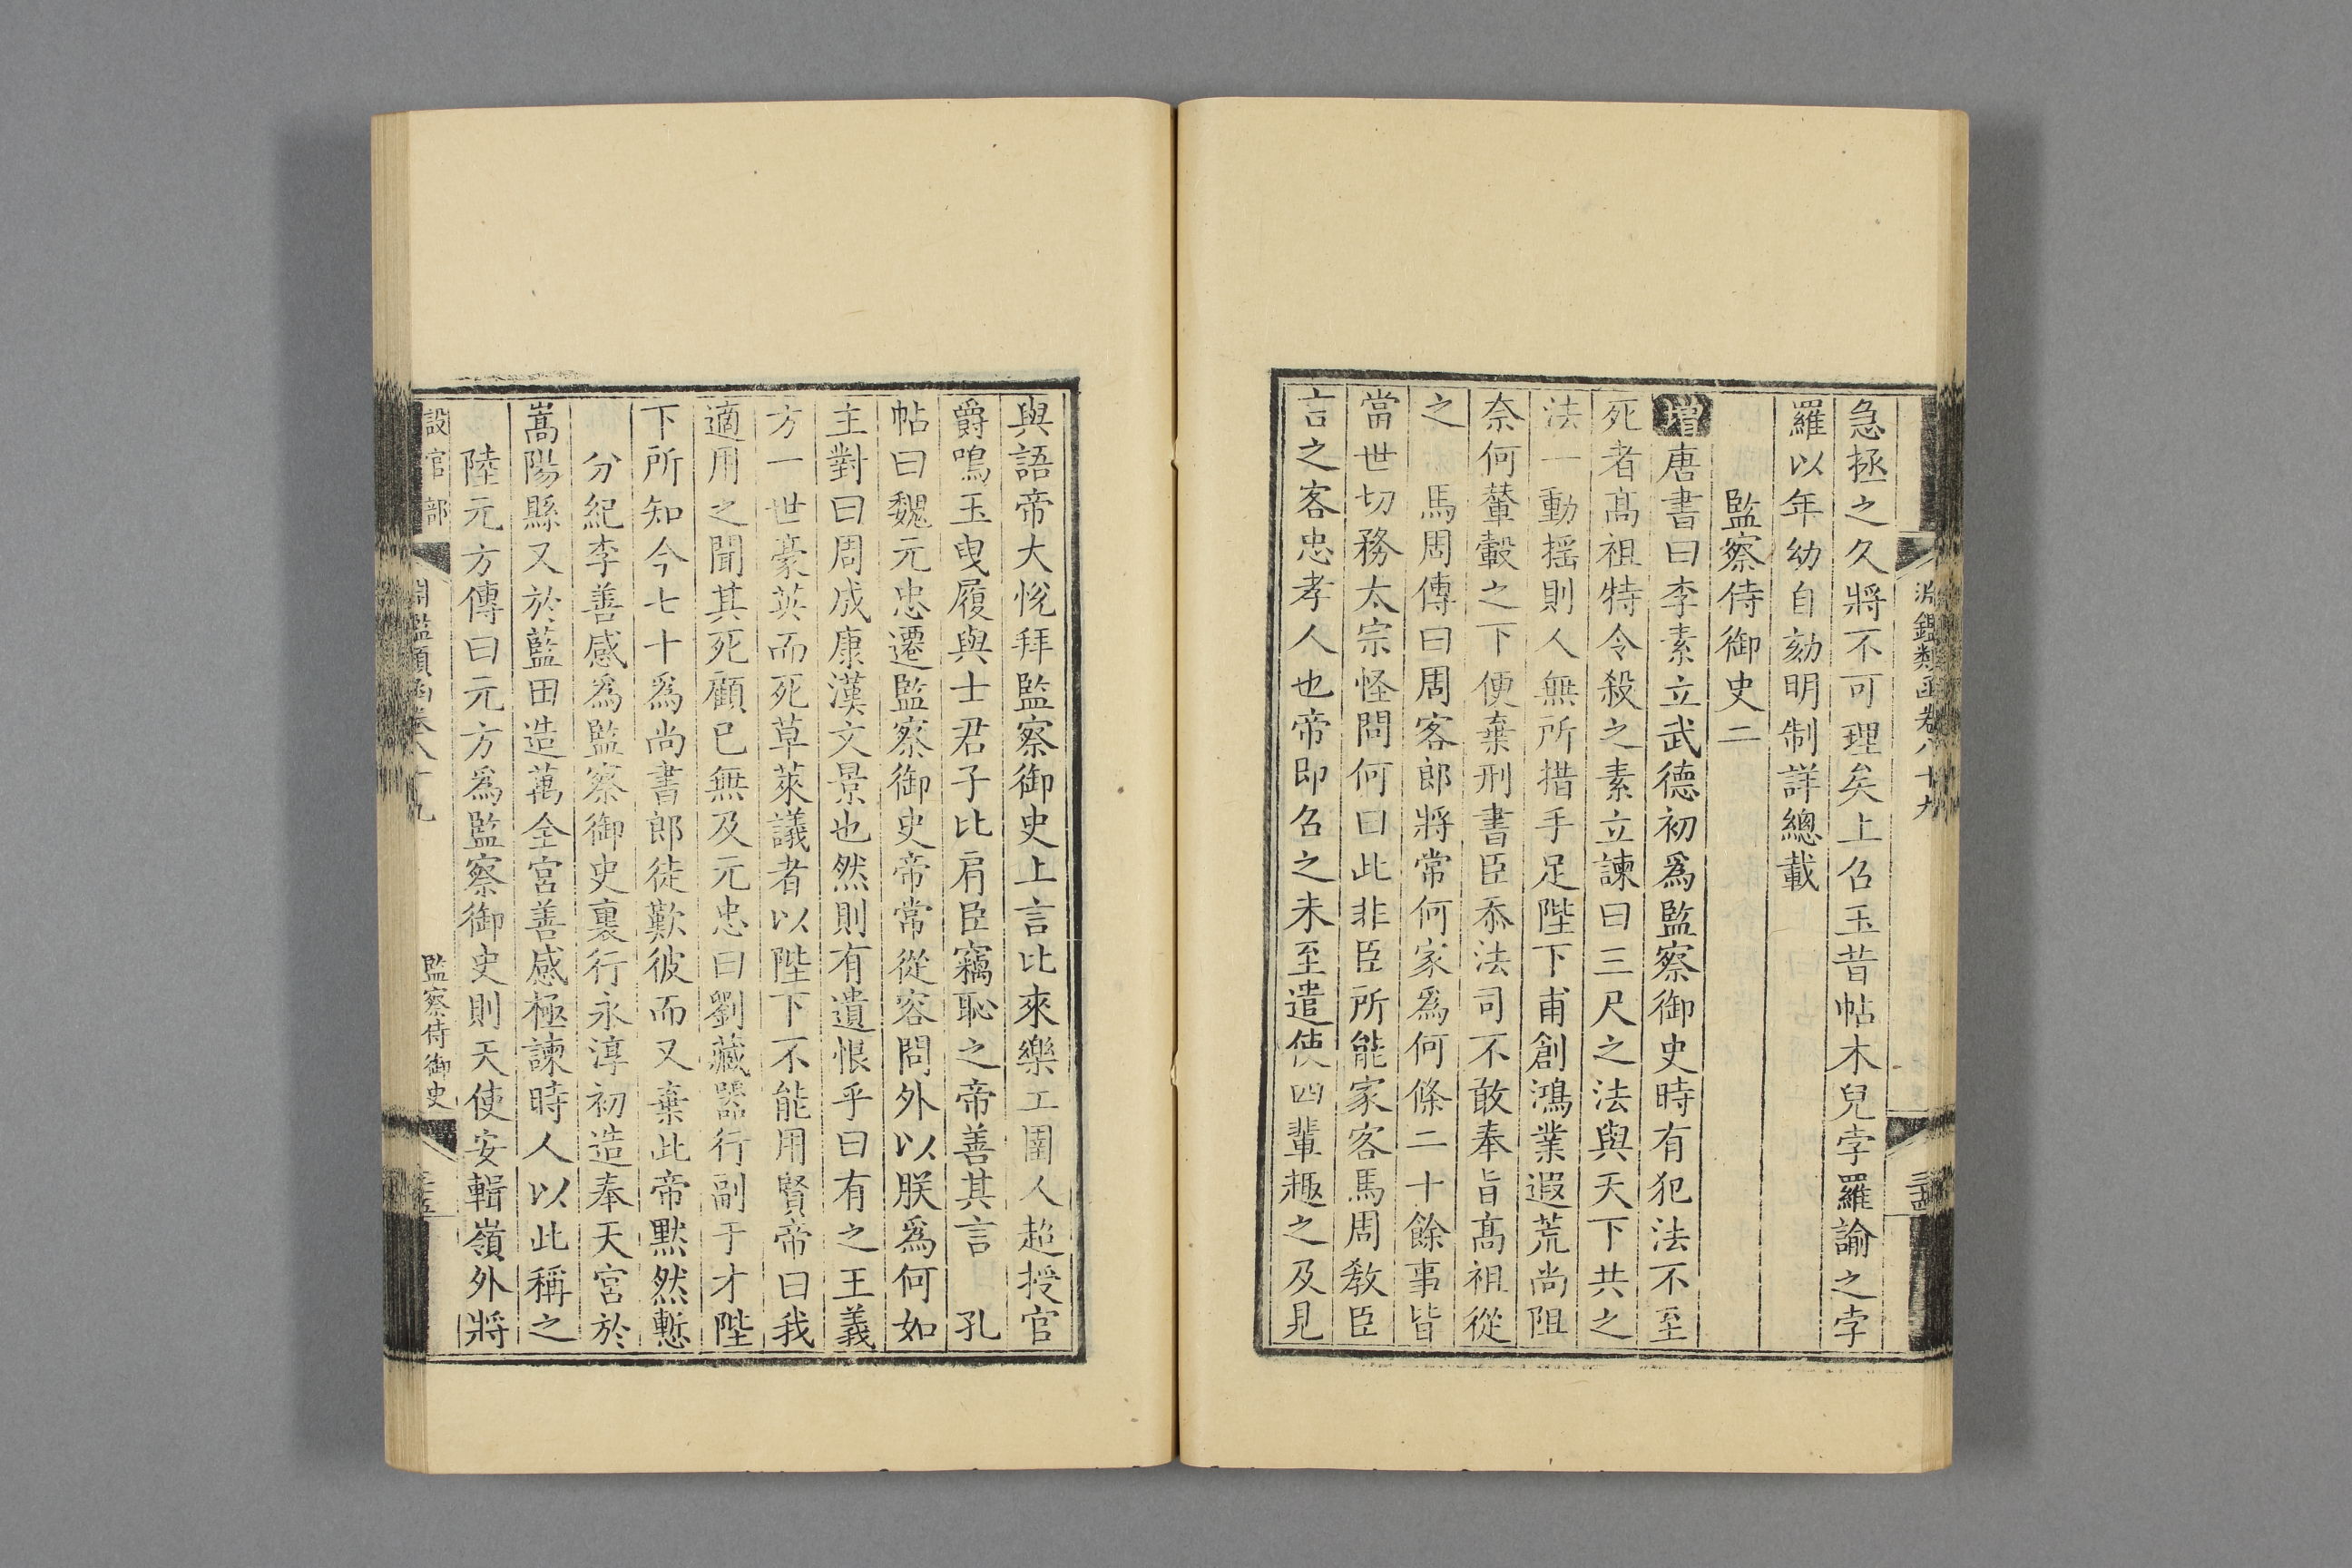 淵鑑類函卷八十九
急拯之久將不可理矣上召玉昔帖木兒孛羅諭之孛
羅以年幼自劾明制詳總載
監察侍御史二
增唐書曰李素立武德初爲監察御史時有犯法不至
死者髙祖特令殺之素立諫曰三尺之法與天下共之
法一動揺則人無所措手足陛下甫創鴻業遐荒尚阻
奈何輦轂之下便棄刑書臣忝法司不敢奉旨髙祖從
之　馬周傳曰周客郎將常何家爲何條二十餘事皆
當世切務太宗怪問何曰此非臣所能家客馬周敎臣
言之客忠孝人也帝即召之未至遣使四輩趣之及見
與語帝大悅拜監察御史上言比來樂工圉人超授官
爵鳴玉曳履與士君子比肩臣竊恥之帝善其言　孔
帖曰魏元忠遷監察御史帝常從容問外以朕爲何如
主對曰周成康漢文景也然則有遺恨乎曰有之王義
方一世豪英而死草萊議者以陛下不能用賢帝曰我
適用之聞其死顧已無及元忠曰劉藏器行副于才陛
下所知今七十爲尚書郎徒歎彼而又棄此帝默然慙
分紀李善感爲監察御史裏行永淳初造奉天宮於
嵩陽縣又於藍田造萬全宮善感極諫時人以此稱之
陸元方傳曰元方爲監察御史則天使安輯嶺外將
設官部
淵鑑類函卷八十九
監察侍御史